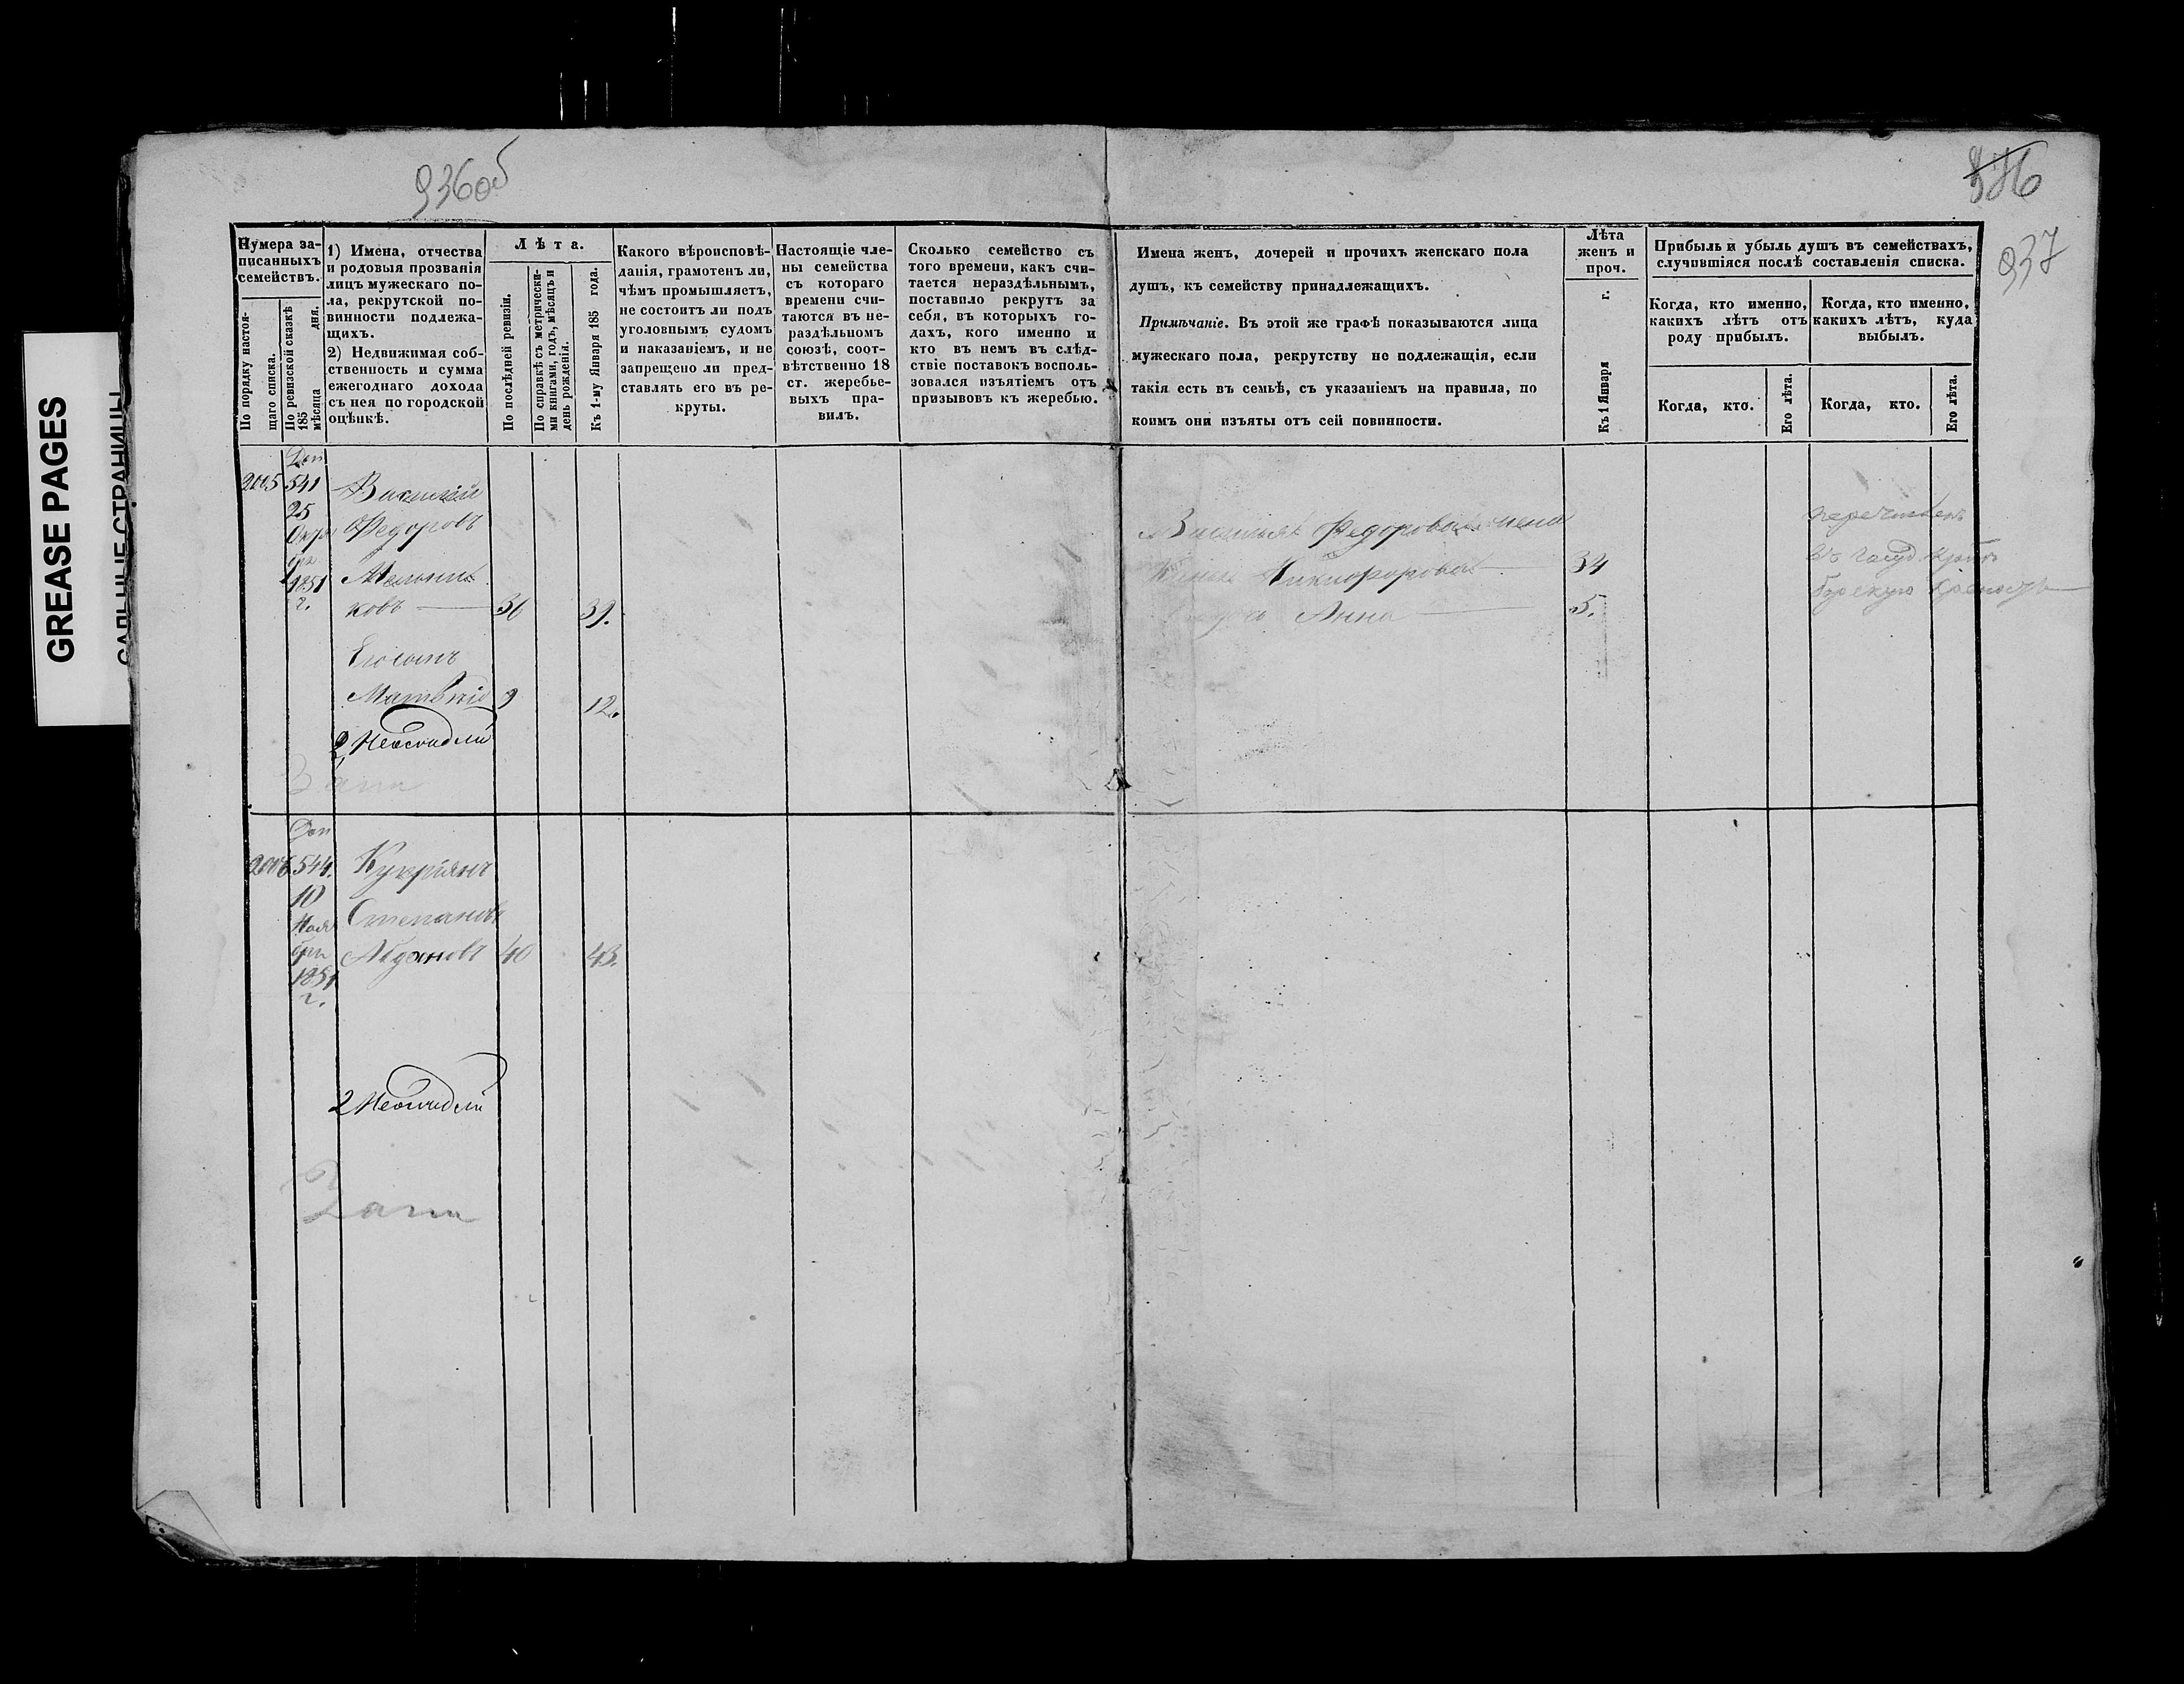 GREASE PAGES
САЛЬНЫЕ СТРАНИЦЫ
936об
937
Нумера за-
писанныхъ
семействъ.
По порядку настоя-
щаго списка.
По ревизской сказкѣ
185 дня.
мѣсяца
1) Имена, отчества
и родовыя прозванія
лицъ мужескаго по-
ла, рекрутской по-
винности подлежа-
щихъ.
2) Недвижимая соб-
ственность и сумма
ежегоднаго дохода
съ нея по городской
оцѣнкѣ.
Лѣта.
По послѣдней ревизіи.
По справкѣ съ метрически-
ми книгами, годъ, мѣсяцъ и
день рожденія.
Къ 1-му Января 185 года.
Какого вѣроисповѣ-
данія, грамотенъ ли,
чѣмъ промышляетъ,
не состоитъ ли подъ
уголовнымъ судомъ
и наказаніемъ, и не
запрещено ли пред-
ставлять его въ ре-
круты.
Настоящіе чле-
ны семейства
съ котораго
времени счи-
таются въ не-
раздѣльномъ
союзѣ, соот-
вѣтственно 18
ст. жеребье-
выхъ пра-
вилъ.
Сколько семейство съ
того времени, какъ счи-
тается нераздѣльнымъ,
поставило рекрутъ за
себя, въ которыхъ го-
дахъ, кого именно и
кто въ немъ въ слѣд-
ствіе поставокъ восполь-
зовался изъятіемъ отъ
призывовъ къ жеребью.
Имена женъ, дочерей и прочихъ женскаго пола
душъ, къ семейству принадлежащихъ.
Примѣчаніе. Въ этой же графѣ показываются лица
мужескаго пола, рекрутству не подлежащія, если
такія есть въ семьѣ, съ указаніемъ на правила, по
коимъ они изъяты отъ сей повинности.
Лѣта
женъ и
проч.
Къ 1 Января г.
Прибыль и убыль душъ въ семействахъ,
случившіяся послѣ составленія списка.
Когда, кто именно,
какихъ лѣтъ отъ
роду прибылъ.
Когда, кто.
Его лѣта.
Когда, кто именно,
какихъ лѣтъ, куда
выбылъ.
Когда, кто.
Его лѣта.
Доп
2005 541
25
Октя
бря
1851
г.
Василій
Федоровъ
Мельни
ковъ 36 39.
Его сынъ
Матвѣй 9 12.
2
Василья Федорова жена
Никифорова 34
дочь Анна 5.
перечислен
въ
Доп
2006 544.
10
Ноя
бря
1851
г.
Купріянъ
Степановъ
40 43.
2